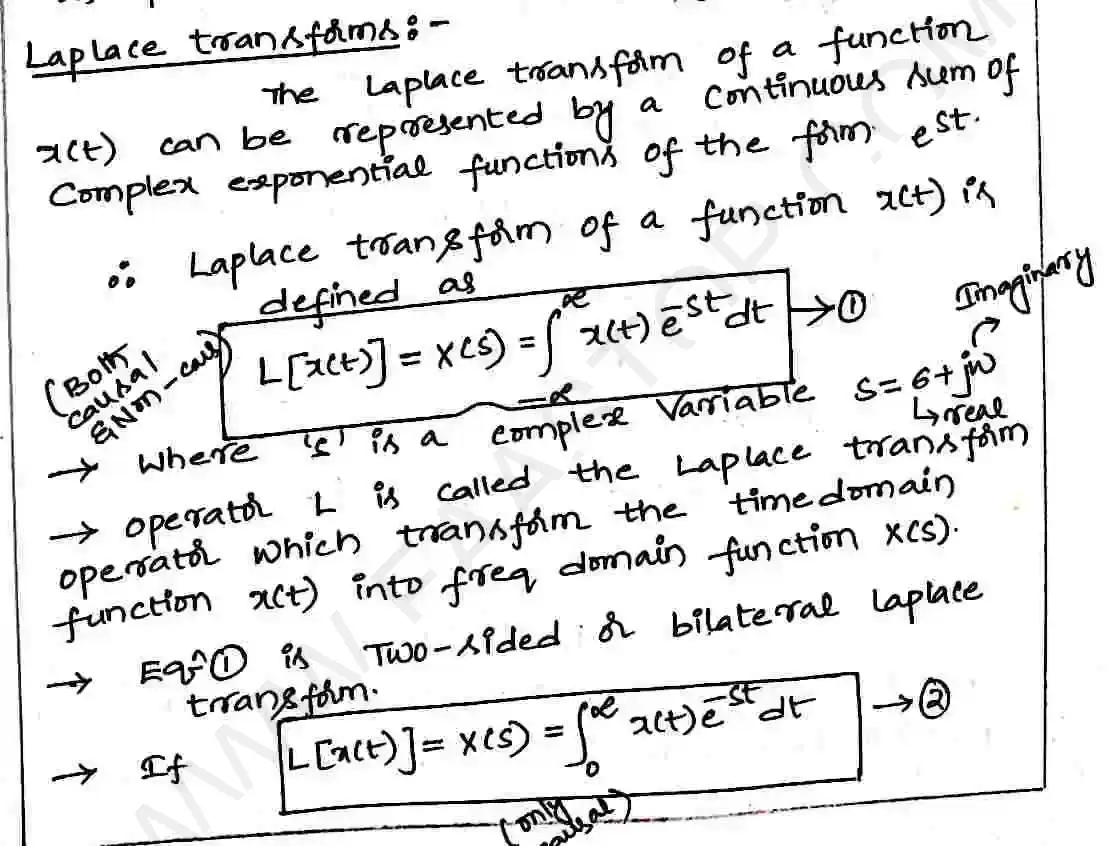 Laplace transforms:-
The Laplace transform of a function
x(t) can be represented by a continuous sum of
Complex exponential functions of the form e^st.
∴ Laplace transform of a function x(t) is
defined as
(Both causal & Non-caus)
L[x(t)] = X(s) = ∫_-∞^∞ x(t) e^-st dt → ①
Imaginary
→ Where 's' is a complex Variable s = σ + jω
↳ real
→ operator L is called the Laplace transform
operator which transform the time domain
function x(t) into freq domain function X(s).
→ Eqn ① is Two-sided or bilateral Laplace
transform.
→ If L[x(t)] = X(s) = ∫_0^∞ x(t) e^-st dt → ②
(only causal)